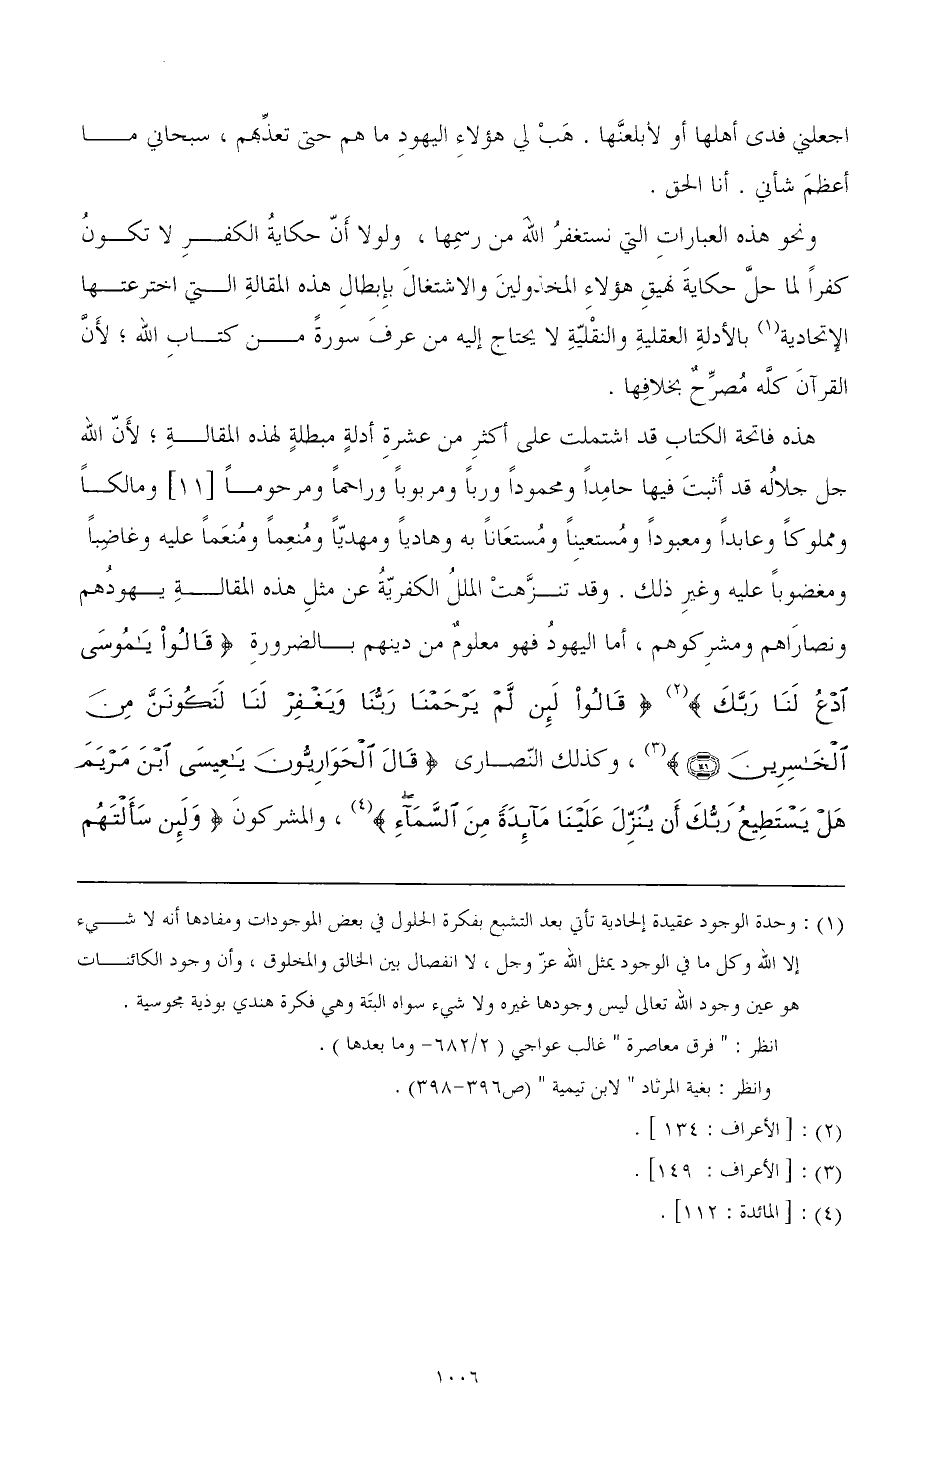 اجعلني فدى أهلها أو لأبلعنَّها . هَبْ لي هؤلاءِ اليهودِ ما هم حتى تعذِّبهم ، سبحاني مـــــا
أعظمَ شأني . أنا الحق .
ونحو هذه العباراتِ التي نستغفرُ اللهَ من رسمِها ، ولولا أَنّ حكايةُ الكفـــر لا تكــونُ
كفراً لما حلَّ حكايةَ نهيقِ هؤلاءِ المخذولينَ والاشتغالَ بإبطالِ هذه المقالةِ الـــتي اخترعتـــها
الإتحادية(١) بالأدلةِ العقليةِ والنقْليّةِ لا يحتاج إليه من عرفَ سورةً مـــــن كتـــابِ الله ؛ لأنَّ
القرآنَ كلَّه مُصرِّحٌ بخلافِها .
هذه فاتحة الكتابِ قد اشتملت على أكثر من عشرةِ أدلةٍ مبطلةٍ لهذه المقالـــةِ ؛ لأَنّ الله
جل جلالُه قد أثبتَ فيها حامِداً ومحموداً ورباً ومربوباً وراحماً ومرحومـــاً [١١] ومالكـــاً
ومملوكاً وعابداً ومعبوداً ومُستعيناً ومُستعَاناً به وهادياً ومهديّاً ومُنعِماً ومُنعَماً عليه وغاضِباً
ومغضوباً عليه وغيرِ ذلك . وقد تنـــزَّهتْ المللُ الكفريّةُ عن مثلِ هذه المقالـــــةِ يـــهودُهم
ونصارَاهم ومشركوهم ، أما اليهودُ فهو معلومٌ من دينهم بـــالضرورةِ ﴿ قَالُواْ يَٰمُوسَى
ٱدْعُ لَنَا رَبَّكَ ﴾(٢) ﴿ قَالُواْ لَئِن لَّمْ يَرْحَمْنَا رَبُّنَا وَيَغْفِرْ لَنَا لَنَكُونَنَّ مِنَ
ٱلْخَٰسِرِينَ ۝ ﴾(٣) ، وكذلك النّصـــارى ﴿ قَالَ ٱلْحَوَارِيُّونَ يَٰعِيسَى ٱبْنَ مَرْيَمَ
هَلْ يَسْتَطِيعُ رَبُّكَ أَن يُنَزِّلَ عَلَيْنَا مَآئِدَةً مِنَ ٱلسَّمَآءِ ﴾(٤) ، والمشركونَ ﴿ وَلَئِن سَأَلْتَهُم
(١) : وحدة الوجود عقيدة إلحادية تأتي بعد التشبع بفكرة الحلول في بعض الموجودات ومفادها أنه لا شـــيء
إلا الله وكل ما في الوجود يمثل الله عزّ وجل ، لا انفصال بين الخالق والمخلوق ، وأن وجود الكائنـــات
هو عين وجود الله تعالى ليس وجودها غيره ولا شيء سواه البتَة وهي فكرة هندي بوذية مجوسية .
انظر : " فرق معاصرة " غالب عواجي ( ٦٨٢/٢- وما بعدها ) .
وانظر : بغية المرتاد " لابن تيمية " (ص٣٩٦-٣٩٨) .
(٢) : [ الأعراف : ١٣٤ ] .
(٣) : [ الأعراف : ١٤٩] .
(٤) : [ المائدة : ١١٢] .
١٠٠٦